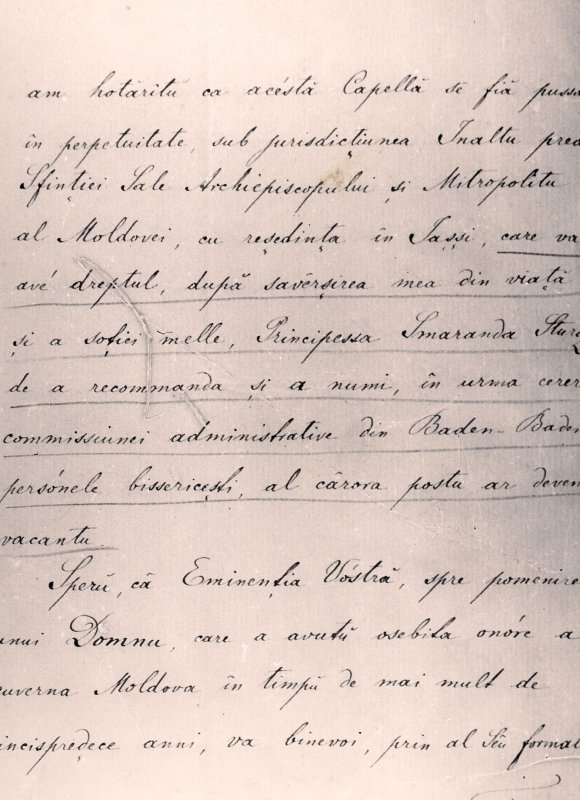 am hotăritŭ ca acéstă Capellă sĕ fiă pussă
în perpetuitate, sub jurisdicţiunea Inaltu prea
Sfinţiei Sale Archiepiscopului şi Mitropolitu
al Moldovei, cu reşedinţa în Iaşşi, care va
avé dreptul, după savêrşirea mea din viaţă
şi a soţiei melle, Principessa Smaranda Stur
de a recommanda şi a numi, în urma cerer
commissiunei administrative din Baden-Baden
persónele bissericeşti, al cărora postŭ ar deven
vacantu.
Sperŭ, că Eminenţia Vóstră, spre pomenire
unui Domnu, care a avutŭ osebita onóre a
guverna Moldova în timpŭ de mai mult de
incispredece anni, va binevoi, prin al Sĕu formal